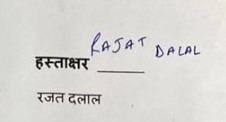 RAJAT DALAL
हस्ताक्षर ______
रजत दलाल